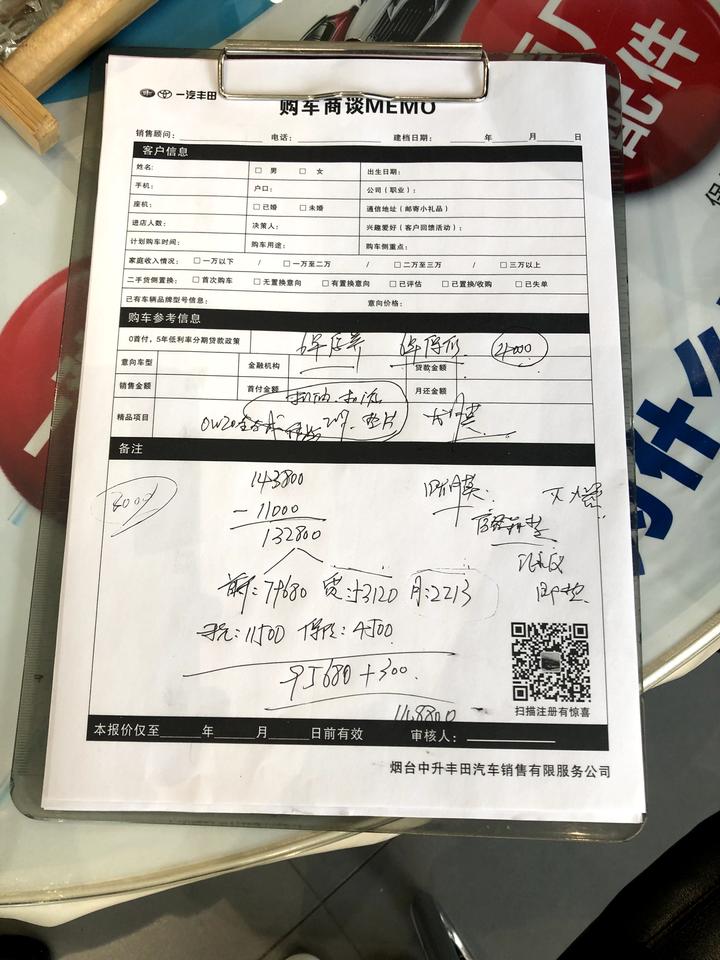 一汽丰田
购车商谈MEMO
销售顾问: 电话: 建档日期: 年 月 日
客户信息
姓名: □ 男 □ 女 出生日期:
手机: 户口: 公司(职业):
座机: □ 已婚 □ 未婚 通信地址(邮寄小礼品)
进店人数: 决策人: 兴趣爱好(客户回馈活动):
计划购车时间: 购车用途: 购车侧重点:
家庭收入情况: □ 一万以下 / □ 一万至二万 / □ 二万至三万 / □ 三万以上
二手货倒置换: □ 首次购车 □ 无置换意向 □ 有置换意向 □ 已评估 □ 已置换/收购 □ 已失单
已有车辆品牌型号信息: 意向价格:
购车参考信息
0首付,5年低利率分期贷款政策 4000
意向车型 金融机构 贷款金额
销售金额 首付金额 月还金额
精品项目 0W20
备注
3000
143800
-11000
132800
首:79680 贷:53120 月:2213
税:11500 保险:4500
95680+300
扫描注册有惊喜
本报价仅至 年 月 日前有效 审核人:
烟台中升丰田汽车销售有限服务公司
配件
为什么